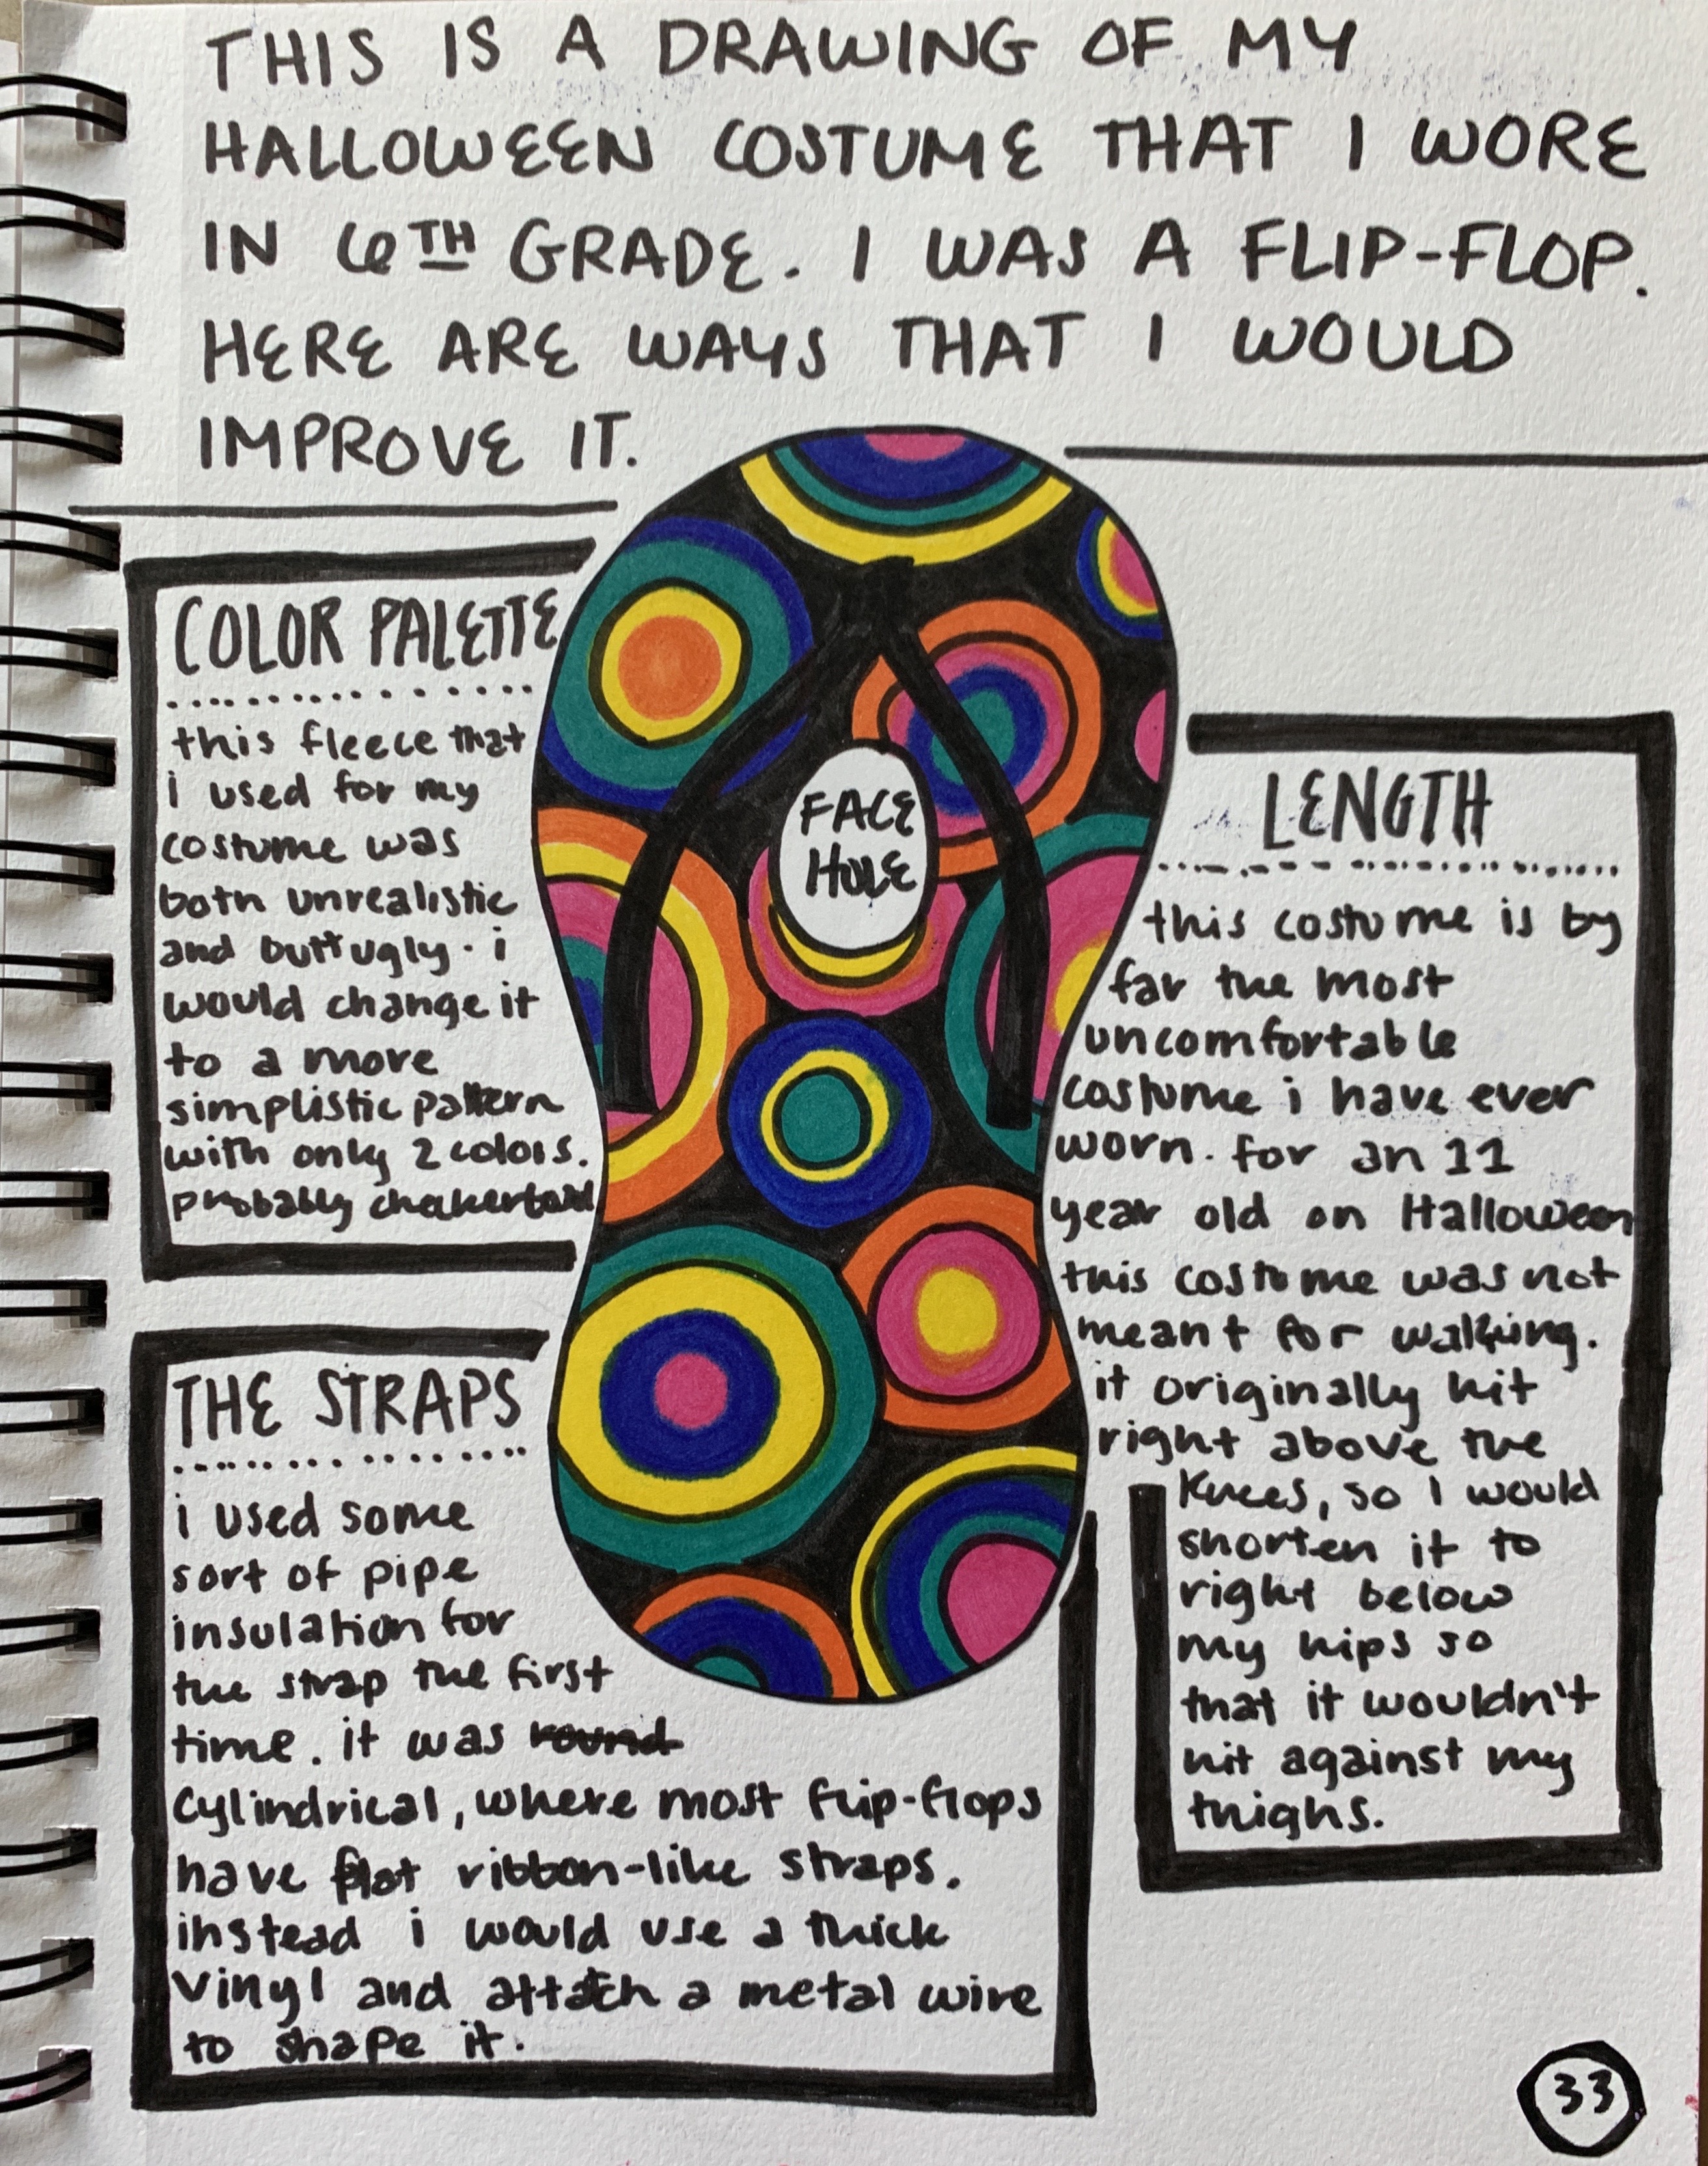 THIS IS A DRAWING OF MY
HALLOWEEN COSTUME THAT I WORE
IN 6TH GRADE. I WAS A FLIP-FLOP.
HERE ARE WAYS THAT I WOULD
IMPROVE IT.
COLOR PALETTE
this fleece that
i used for my
costume was
both unrealistic
and butt ugly. i
would change it
to a more
simplistic pattern
with only 2 colors.
probably checkerboard
FACE
HOLE
LENGTH
this costume is by
far the most
uncomfortable
costume i have ever
worn. for an 11
year old on Halloween
this costume was not
meant for walking.
it originally hit
right above the
knees, so I would
shorten it to
right below
my hips so
that it wouldn't
hit against my
thighs.
THE STRAPS
i used some
sort of pipe
insulation for
the strap the first
time. it was round
cylindrical, where most flip-flops
have flat ribbon-like straps.
instead i would use a thick
vinyl and attatch a metal wire
to shape it.
33